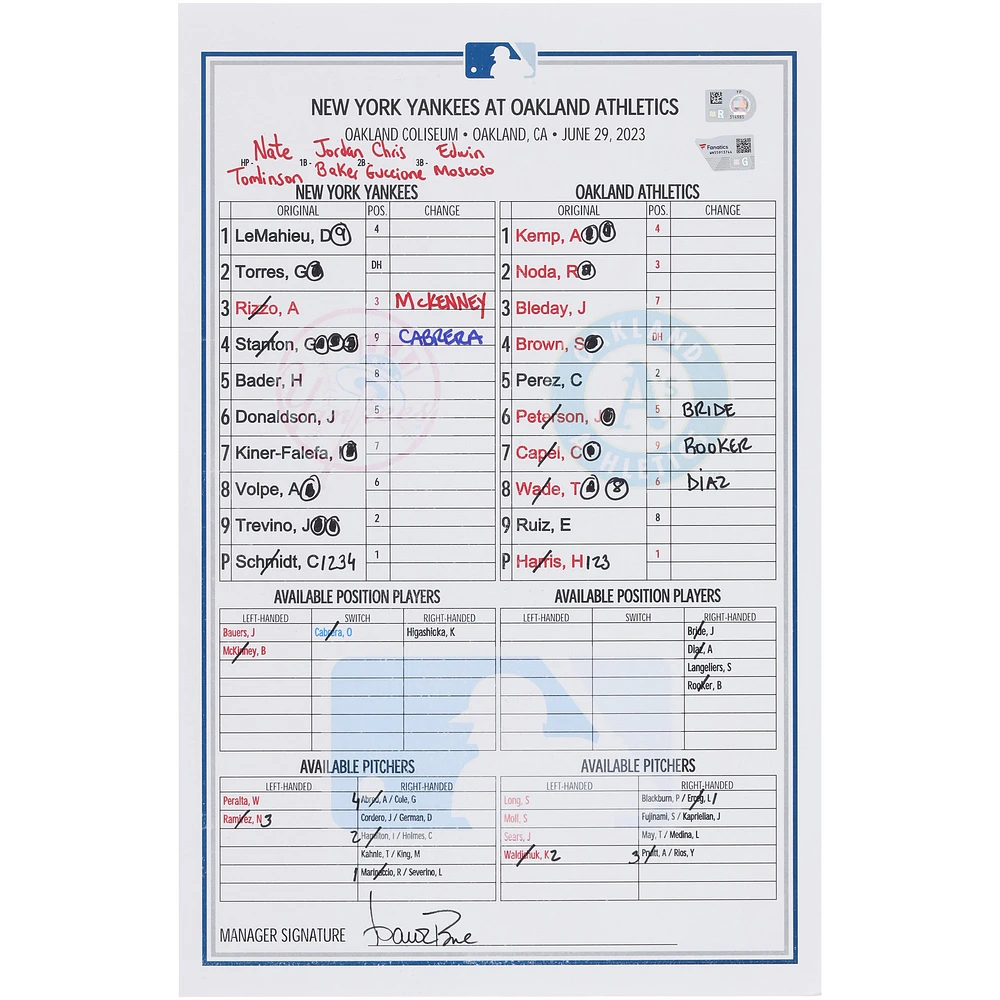 NEW YORK YANKEES AT OAKLAND ATHLETICS
OAKLAND COLISEUM • OAKLAND, CA • JUNE 29, 2023
HP - Nate Tomlinson 1B - Jordan Baker 2B - Chris Guccione 3B - Edwin Moscoso
Fanatics
NEW YORK YANKEES
ORIGINAL POS. CHANGE
1 LeMahieu, D 9 4
2 Torres, G DH
3 Rizzo, A 3 McKENNEY
4 Stanton, G 9 CABRERA
5 Bader, H 8
6 Donaldson, J 5
7 Kiner-Falefa, I 7
8 Volpe, A 6
9 Trevino, J 2
P Schmidt, C 1234 1
OAKLAND ATHLETICS
ORIGINAL POS. CHANGE
1 Kemp, A 4
2 Noda, R 3
3 Bleday, J 7
4 Brown, S DH
5 Perez, C 2
6 Peterson, J 5 BRIDE
7 Capel, C 9 ROOKER
8 Wade, T 8 6 DIAZ
9 Ruiz, E 8
P Harris, H 123 1
AVAILABLE POSITION PLAYERS
LEFT-HANDED SWITCH RIGHT-HANDED
Bauers, J Cabrera, O Higashioka, K
McKinney, B
AVAILABLE POSITION PLAYERS
LEFT-HANDED SWITCH RIGHT-HANDED
Bride, J
Diaz, A
Langeliers, S
Rooker, B
AVAILABLE PITCHERS
LEFT-HANDED RIGHT-HANDED
Peralta, W 4 Abreu, A / Cole, G
Ramirez, N 3 Cordero, J / German, D
2 Hamilton, I / Holmes, C
Kahnle, T / King, M
1 Marinaccio, R / Severino, L
AVAILABLE PITCHERS
LEFT-HANDED RIGHT-HANDED
Long, S Blackburn, P / Erceg, L 1
Moll, S Fujinami, S / Kaprielian, J
Sears, J May, T / Medina, L
Waldichuk, K 2 3 Pruitt, A / Rios, Y
MANAGER SIGNATURE